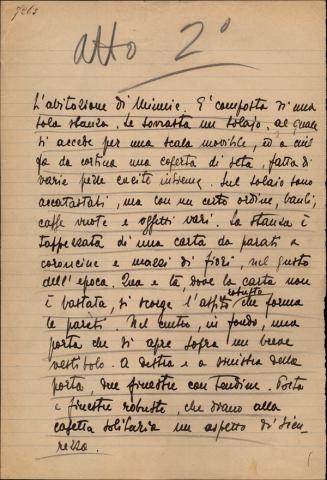 7263
Atto 2°
L'abitazione di Minnie. E' composta di una
sola stanza. Le sovrasta un solaio, al quale
si accede per una scala movibile, ed a cui
fa da cortina una coperta di seta, fatta di
varie pezze cucite insieme. Sul solaio sono
accatastati, ma con un certo ordine, bauli,
casse vuote e oggetti vari. La stanza è
tappezzata di una carta da parati a
coroncine e mazzi di fiori, nel gusto
dell'epoca. Qua e là, dove la carta non
è bastata, si scorge l'assito robusto che forma
le pareti. Nel centro, in fondo, una
porta che si apre sopra un breve
vestibolo. A destra e a sinistra della
porta, due finestre con tendine. Porta
e finestre robuste, che danno alla
casetta solitaria un aspetto di sicu-
rezza.